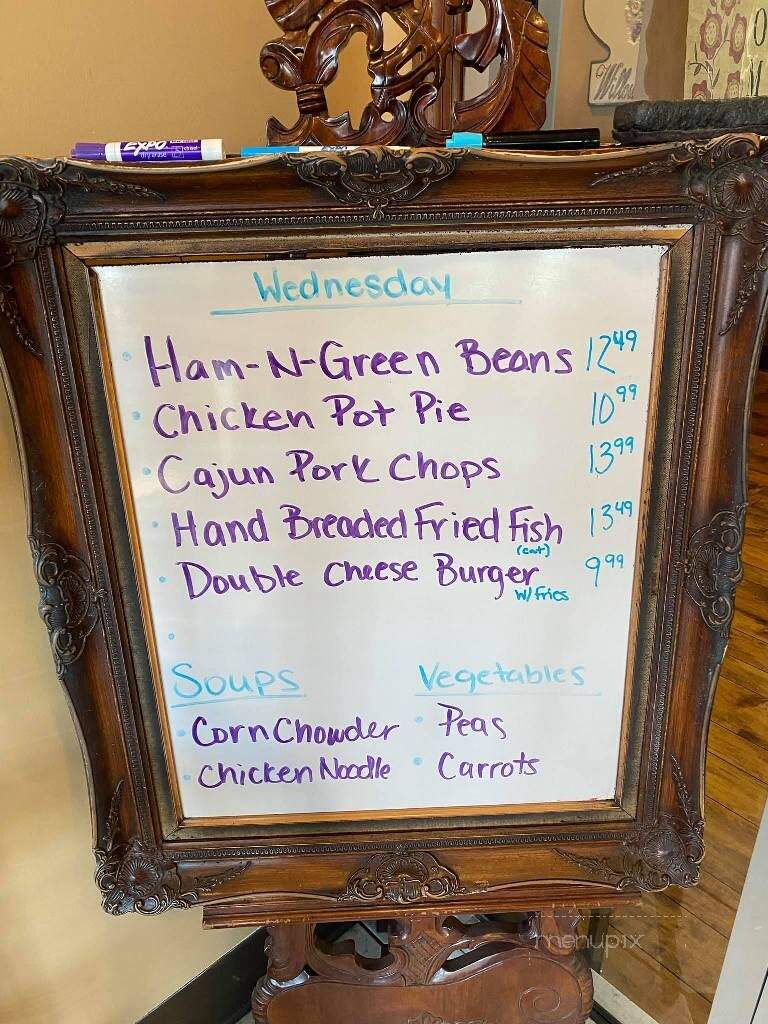 EXPO
dry erase
Wednesday
Ham-N-Green Beans 12 49
Chicken Pot Pie 10 99
Cajun Pork Chops 13 99
Hand Breaded Fried Fish 13 49
(cat)
Double Cheese Burger 9 99
w/ fries
Soups Vegetables
Corn Chowder Peas
Chicken Noodle Carrots
menupix